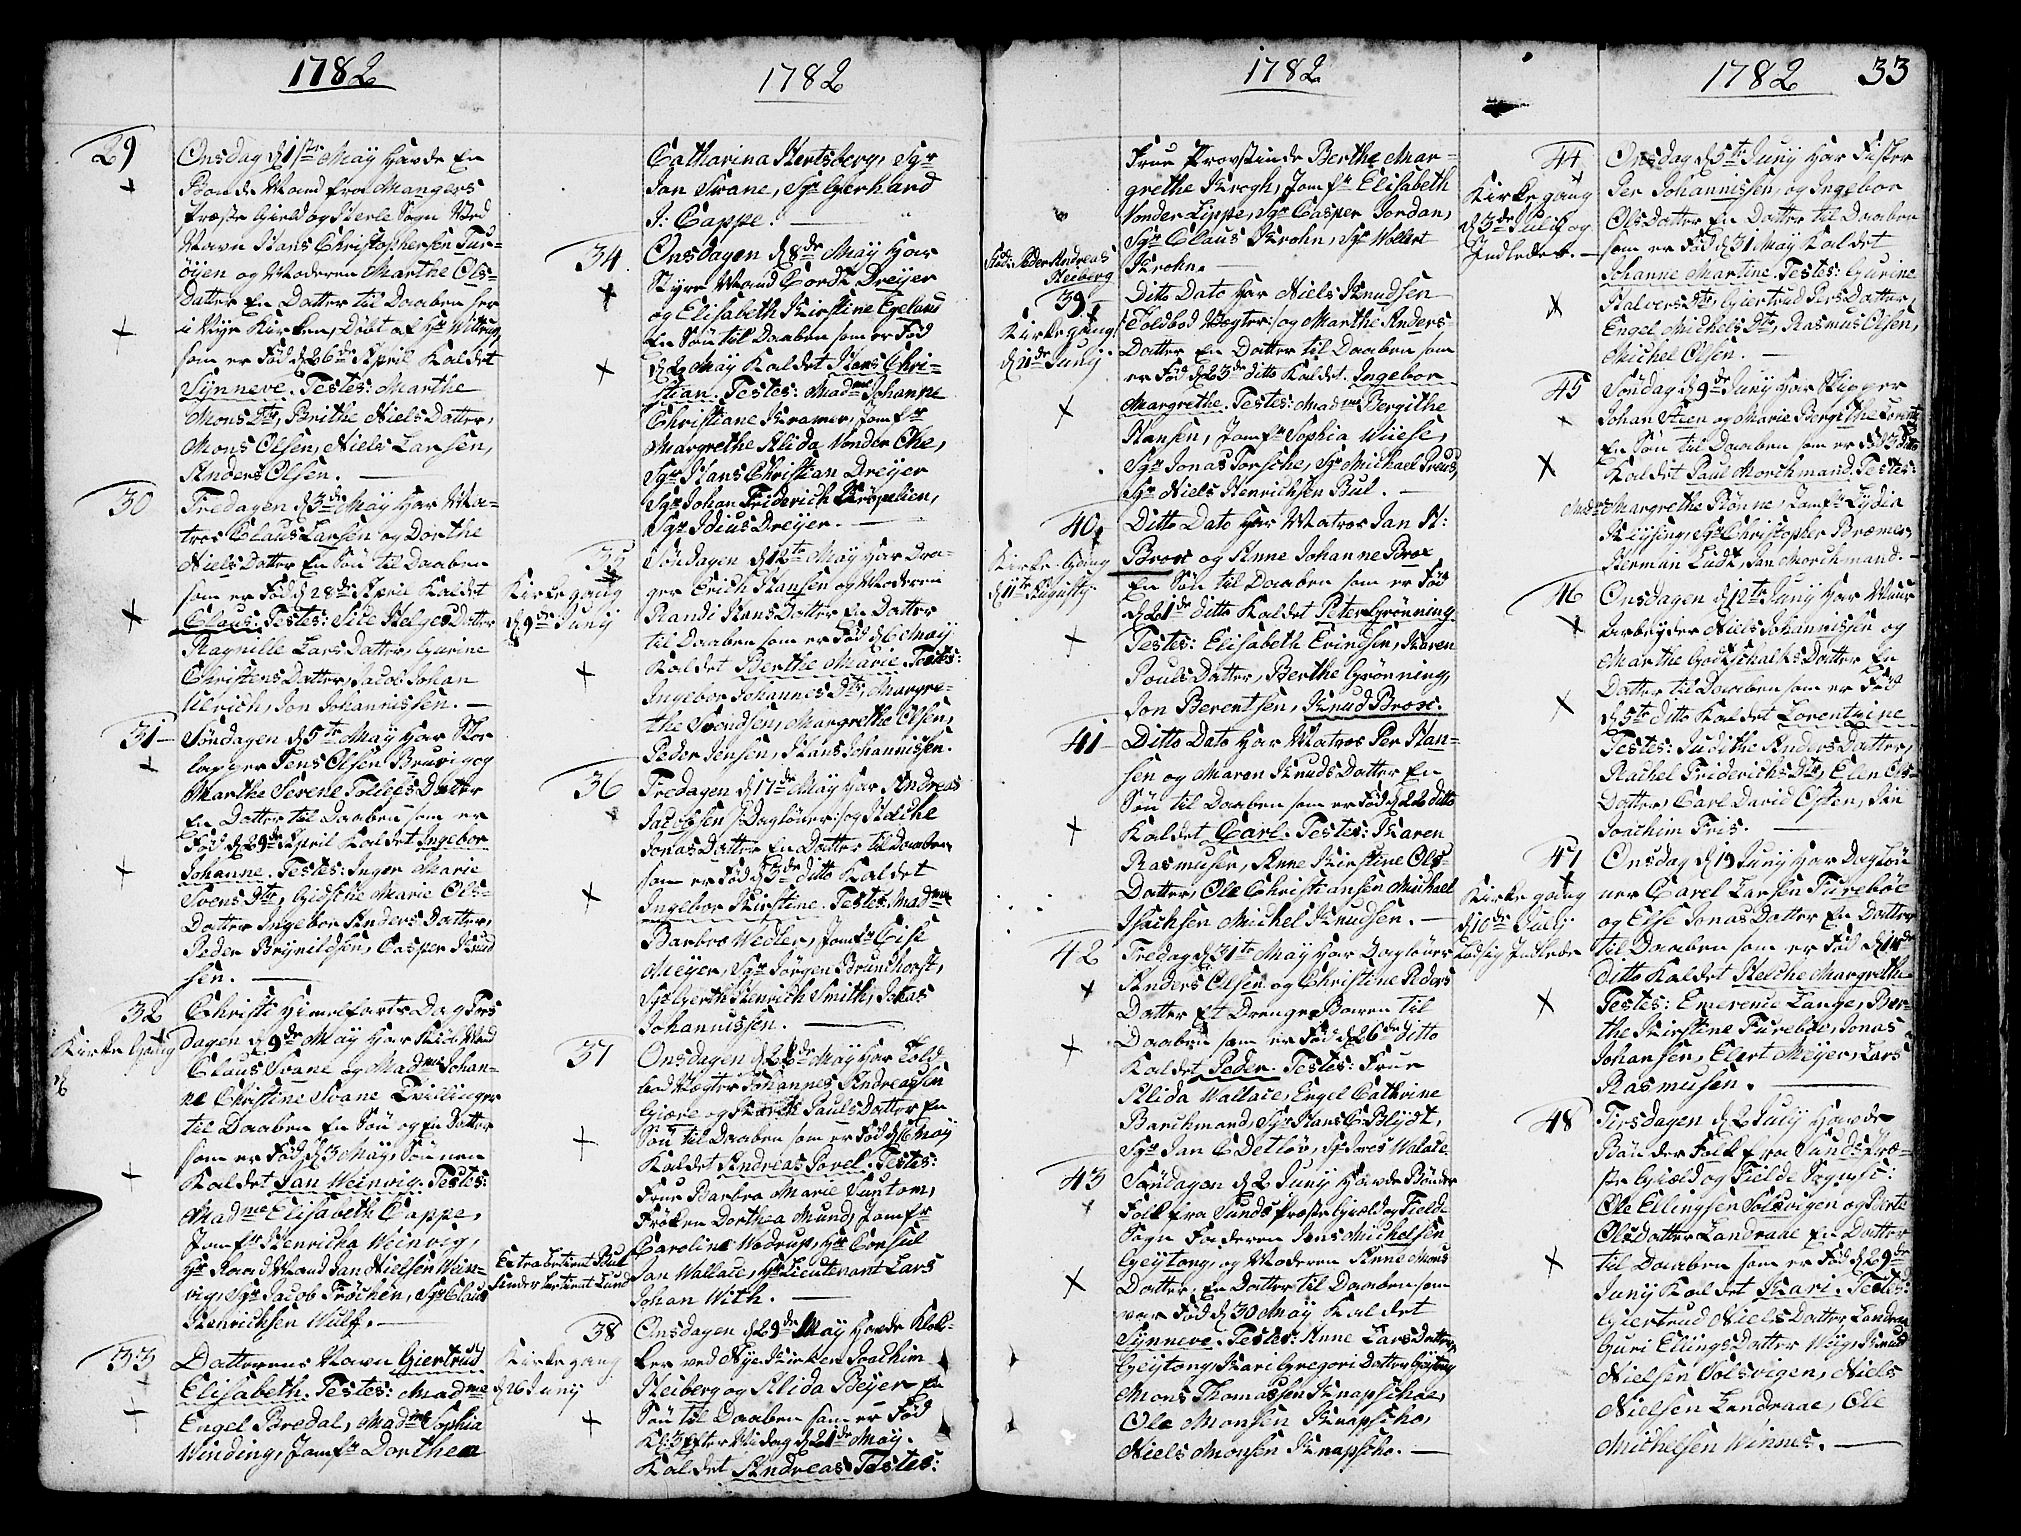 1782
29
Onsdag d 1ste Maÿ havde En
Bonde Mand fra Mangers
Præste Gield og Herle Sogn Ved
Navn Hans Christophersen Tur-
öÿen og Moderen Marthe Ols-
Datter En Datter til Daaben her
i Nÿe Kirken, Döbt af Hr Wittrup
som er Föd d 26de April Kaldet
Sÿnneve. Testes: Marthe
Mons Dtr, Brithe Niels Datter,
Mons Olsen, Niels Larsen,
Anders Olsen. —
30
Fredagen d 3de Maÿ har Ma-
tros Claus Larsen og Dorthe
Niels Datter En Sön til Daaben
som er Föd d 28de April Kaldet
Claus. Testes: Sile Helges Datter
Ragnille Lars Datter, Gurine
Christens Datter, Jacob Johan
Ulrich, Jon Johannissen. —
31
Söndagen d 5te Maÿ har
Jens Olsen Bruvig og
Marthe Serene Tollefs Datter
En Datter til Daaben som er
Föd d 29de April Kaldet Ingebor
Johanne. Testes: Inger Marie
Svens Dtr, Gidsche Marie Ols-
Datter Ingebor Anders Datter,
Peder Brÿnildsen, Casper Knud
sen. —
32
Kirke Gang
Christi Himelfarts Dag Tors
dagen d 9de Maÿ har Kiöb Mand
Claus Svane og Madme Johan-
ne Christine Svane Tvillinger
til Daaben En Sön og En Datter
som er Föd d 3 Maÿ, Sönnen
Kaldet Jan Weinvig. Testes:
Madme Elisabeth Cappe,
Jomfr Henricha Weinvig,
Hr Raad Mand Jan Nielsen Wein-
vig, Sgr Jacob Fröchen, Sgr Claus
Henrichsen Wulf. —
33
Datterens Navn Giertrud
Elisabeth. Testes: Madme
Engel Bredal, Madme Sophia
Winding, Jomfr Dorthea
1782
Catharina Hertsberg, Sgr
Jan Svane, Sgr Gerhard
J: Cappe. —
34
Onsdagen d 8de Maÿ har
Stÿre Mand Cordt Dreÿer
og Elisabeth Kirstine
En Sön til Daaben som er Föd
d 2 Maÿ Kaldet Hans Chri-
stian. Testes: Madme Johanne
Christiane Kramer, Jomfr
Margrethe Alida Vonder Ohe,
Sgr Hans Christian Dreÿer
Sgr Johan Friderich
Sgr Idius Dreÿer. —
35
Kirke gang
d 9de Junÿ
Söndagen d 12te Maÿ har Dra-
ger Erich Hansen og Moderen
Randi Hans Datter En Datter
til Daaben som er Föd d 6 Maÿ
Kaldet Berthe Marie Testes:
Ingebor Johannes Dtr, Margre-
the Svendsen, Margrethe Olsen,
Peder Jensen, Hans Johannissen.
36
Fredagen d 17de Maÿ har Andreas
Jacobsen /: Daglöner :/ og Heldhe
Jonas Datter En Datter til Daaben
som er Föd d 3de ditto Kaldet
Ingebor Kirstine. Testes: Madme
Barbro Wedler, Jomfr Cise
Meÿer, Sgr Jörgen Brunchorst,
Sgr Gerth Henrich Smith, Jonas
Johannissen. —
37
Extra betient Bul
Under betient Lund
Onsdagen d 22de Maÿ har Told
bod Vogter Johannes Andreassen
Giære og Marte Pauls Datter En
Sön til Daaben som er Föd d 16 Maÿ
Kaldet Andreas Povel. Testes:
Frue Barbra Marie Suntom,
Fröken Dorthea Mund, Jomfr
Caroline Wedrup, Hr Consul
Jan Wallace, Hr Lieutenant Lars
Johan With. —
38
Kirke gang
d 26 Junÿ
Onsdagen d 29de Maÿ havde Klok-
ker ved Nÿe Kirken Joachim
Heiberg og Alida Beÿer En
Sön til Daaben som er Föd
Kl: 3 Efter Midag d 21de Maÿ.
Kaldet Andreas Testes:
1782
Frue Provstinde Berthe Mar-
grethe Krogh, Jomfr Elisabeth
Vonder Lippe, Sgr Casper Jordan,
Sgr Claus Krohn, Sgr Wollert
Krohn. —
Peder Andreas
Heiberg
39
Kirke gang
d 11de Junÿ
Ditto Dato har Niels Knudsen
/: Toldbod Vogter :/ og Marthe Anders-
Datter En Datter til Daaben som
er Föd d 23de ditto Kaldet Ingebor
Margrethe. Testes: Madme Bergithe
Hansen, Jomfr Sophia Wiise,
Sgr Jonas Torsche, Sgr Michael Preus,
Sgr Niels Henrichsen Bul. —
40
Kirke Gang
d 11te Augusty
Ditto Dato har Matros Jan H:
Brose og Anne Johanne Brose
En Sön til Daaben som er Föd
d 21de ditto Kaldet Peter Grönning
Testes: Elisabeth Evindsen, Karen
Pouls Datter, Berthe Grönning,
Jon Berentsen, Knud Brose.
41
Ditto Dato har Matros Per Han-
sen og Maren Knuds Datter En
Sön til Daaben som er Föd d 22 ditto
Kaldet Carl. Testes: Karen
Rasmusen, Anne Kirstine Ols-
Datter, Ole Christiansen Michael
Isachsen Michel Knudsen. —
42
Fredag d 31te Maÿ har Daglöner
Anders Olsen og Christine Peders
Datter Et Drenge Baren til
Daaben som er Föd d 26de ditto
Kaldet Peder. Testes: Frue
Alida Wallace, Engel Cathrine
Barchmand, Sgr Hans C Blÿdt,
Sgr Jan C Detlöv, Sr Jores Walace.
43
Söndagen d 2 Junÿ havde Bönder
Folk fra Sunds Præste Gield og Tielde
Sogn Faderen Jens Michelsen
Geÿtong, og Moderen Anne Mons
Datter, En Datter til Daaben som
var Föd d 30 Maÿ Kaldet
Sÿnneve. Testes: Anne Lars Datter
Geÿtong, Kari Gregori Datter Geÿtong
Mons Thomassen Knapschoe,
Ole Monsen Knapscho,
Niels Monsen Knapscho. —
1782
33
44
Kirke gang
d 3de Julÿ og
Indleder. —
Onsdag d 5te Junÿ har Fisker
Per Johannissen, og Ingebor
Ols Datter En Datter til Daaben
som er Föd d 31 Maÿ Kaldet
Johanne Martine. Testes: Gurine
Halvers Dtr, Giertrud Pers Datter,
Engel Michels Dtr, Rasmus Olsen,
Michel Olsen. —
45
Söndag d 9de Junÿ har Skipper
Johan Steen og Marie Bergithe
En Sön til Daaben som er Föd d 3 ditto
Kaldet Paul Morchmand. Testes:
Madme Margrethe Rönne, Jomfr Lÿdia
Kiÿsing, Sgr Christopher Bræmer,
Herman Lüdt, Jan Morchmand. —
46
Onsdagen d 12te Junÿ har Muur
Arbeÿder Niels Johannissen og
Marthe Godtschalks Datter En
Datter til Daaben som er Föd
d 5te ditto Kaldet Lorentzine
Testes: Judithe Anders Datter,
Rachel Friderichs Dtr, Elen Ols-
Datter, Carl David Olsen, Jan
Joachim Fris. —
47
Kirke gang
d 10de Julÿ
lod sig Indlede
Onsdag d 19 Junÿ har Daglön
ner Carel Larsen Fureböe
og Else Jonas Datter En Datter
til Daaben som er Föd d 14de
ditto Kaldet Heldhe Margrethe
Testes: Emerence Lange, Ber-
the Kirstine Fureböe, Jonas
Johansen, Elert Meÿer, Lars
Rasmusen. —
48
Tirsdagen d 2 Julÿ havde
Bönder Folk fra Sunds Præ-
ste Gield og Tielde Sogn
Ole Ellingsen Solsvigen og Brite
Ols Datter Landraae En Datter
til Daaben som er Föd d 29de
Junÿ Kaldet Kari. Testes:
Giertrud Niels Datter Landraa
Guri Ellings Datter Vÿig, Knud
Nielsen Solsvigen, Niels
Nielsen Landraae, Ole
Michelsen Winnes. —